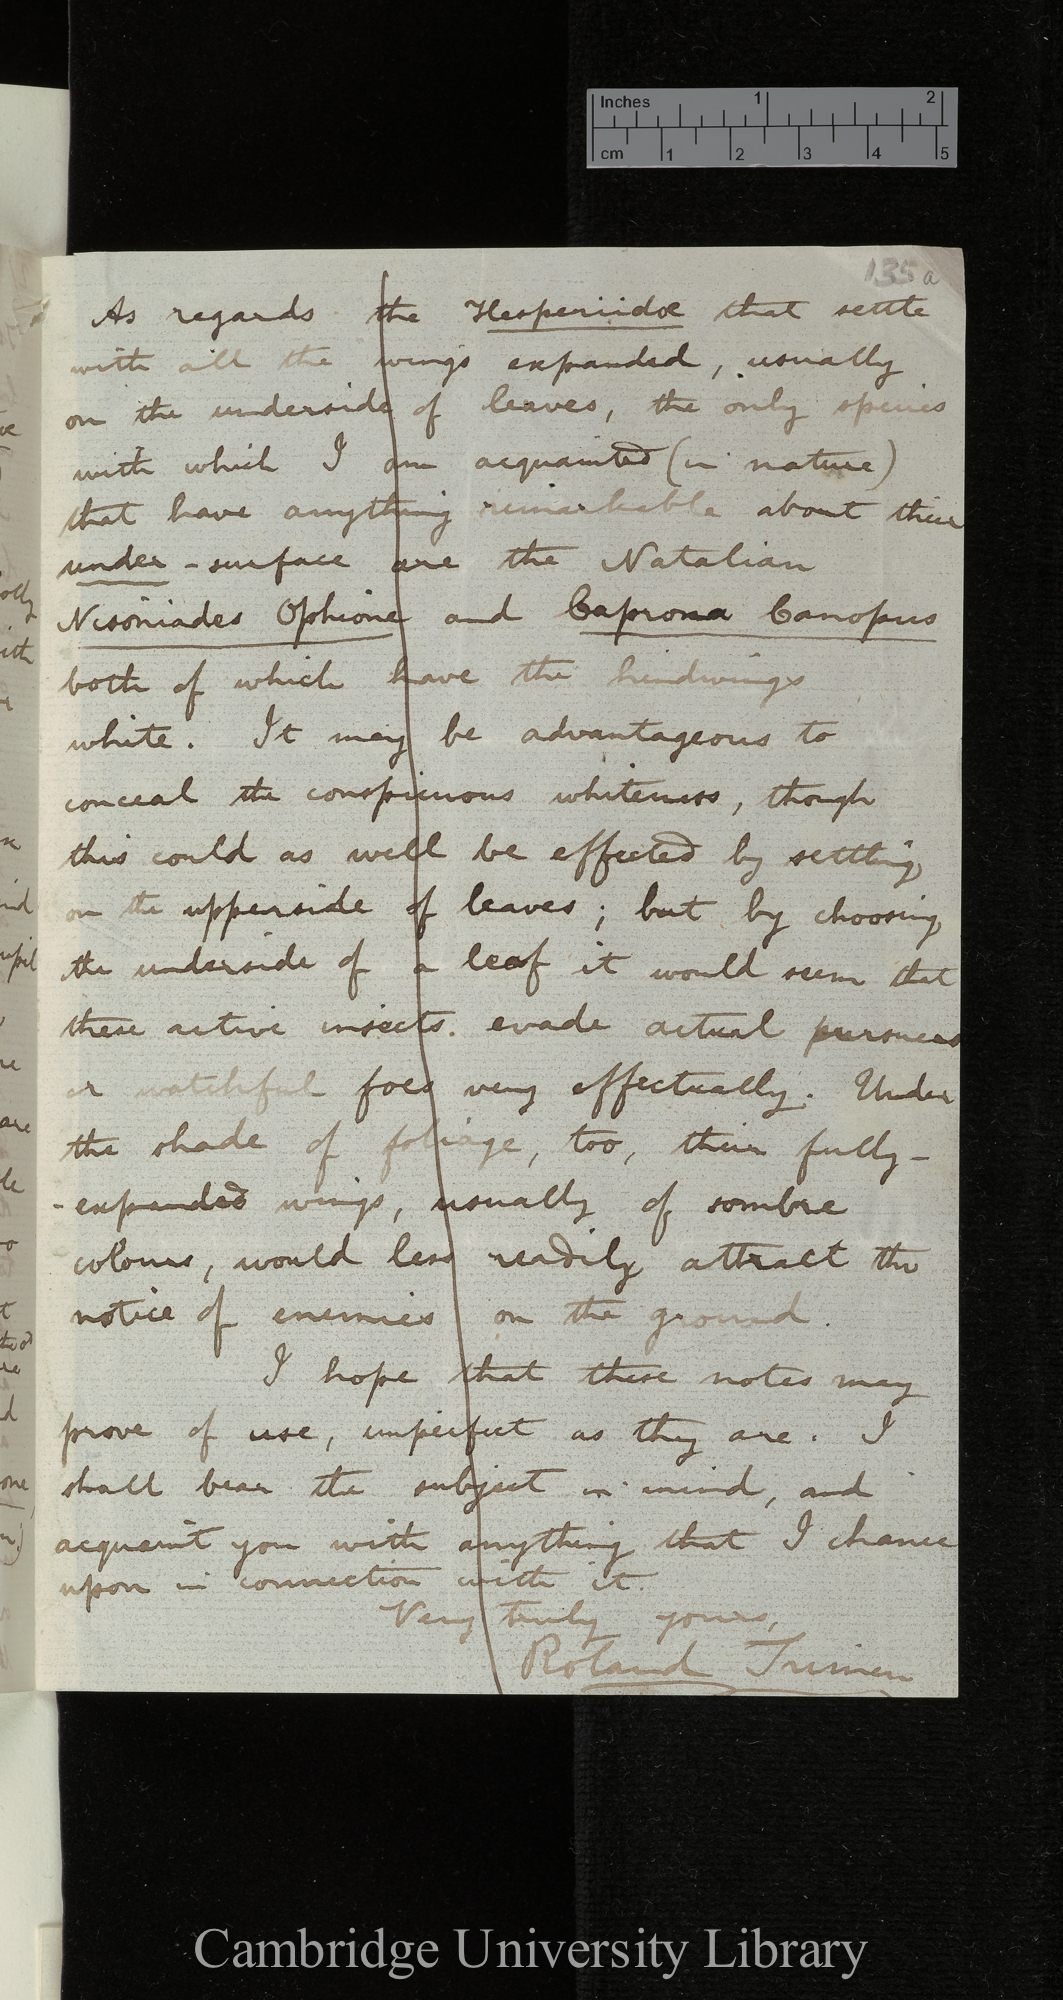 Inches 1 2
cm 1 2 3 4 5
135a
As regards the Hesperiidæ that settle
with all the wings expanded, usually
on the underside of leaves, the only species
with which I am acquainted (in nature)
that have anything remarkable about their
under-surface are the Natalian
Nisoniades Ophione and Caprona Canopus
both of which have the hindwings
white. It may be advantageous to
conceal the conspicuous whiteness, though
this could as well be effected by settling
on the upperside of leaves; but by choosing
the underside of a leaf it would seem that
these active insects evade actual pursuers
or watchful foes very effectually. Under
the shade of foliage, too, their fully-
-expanded wings, usually of sombre
colours, would less readily attract the
notice of enemies on the ground.
I hope that these notes may
prove of use, imperfect as they are. I
shall bear the subject in mind, and
acquaint you with anything that I chance
upon in connection with it.
Very truly yours,
Roland Trimen
Cambridge University Library